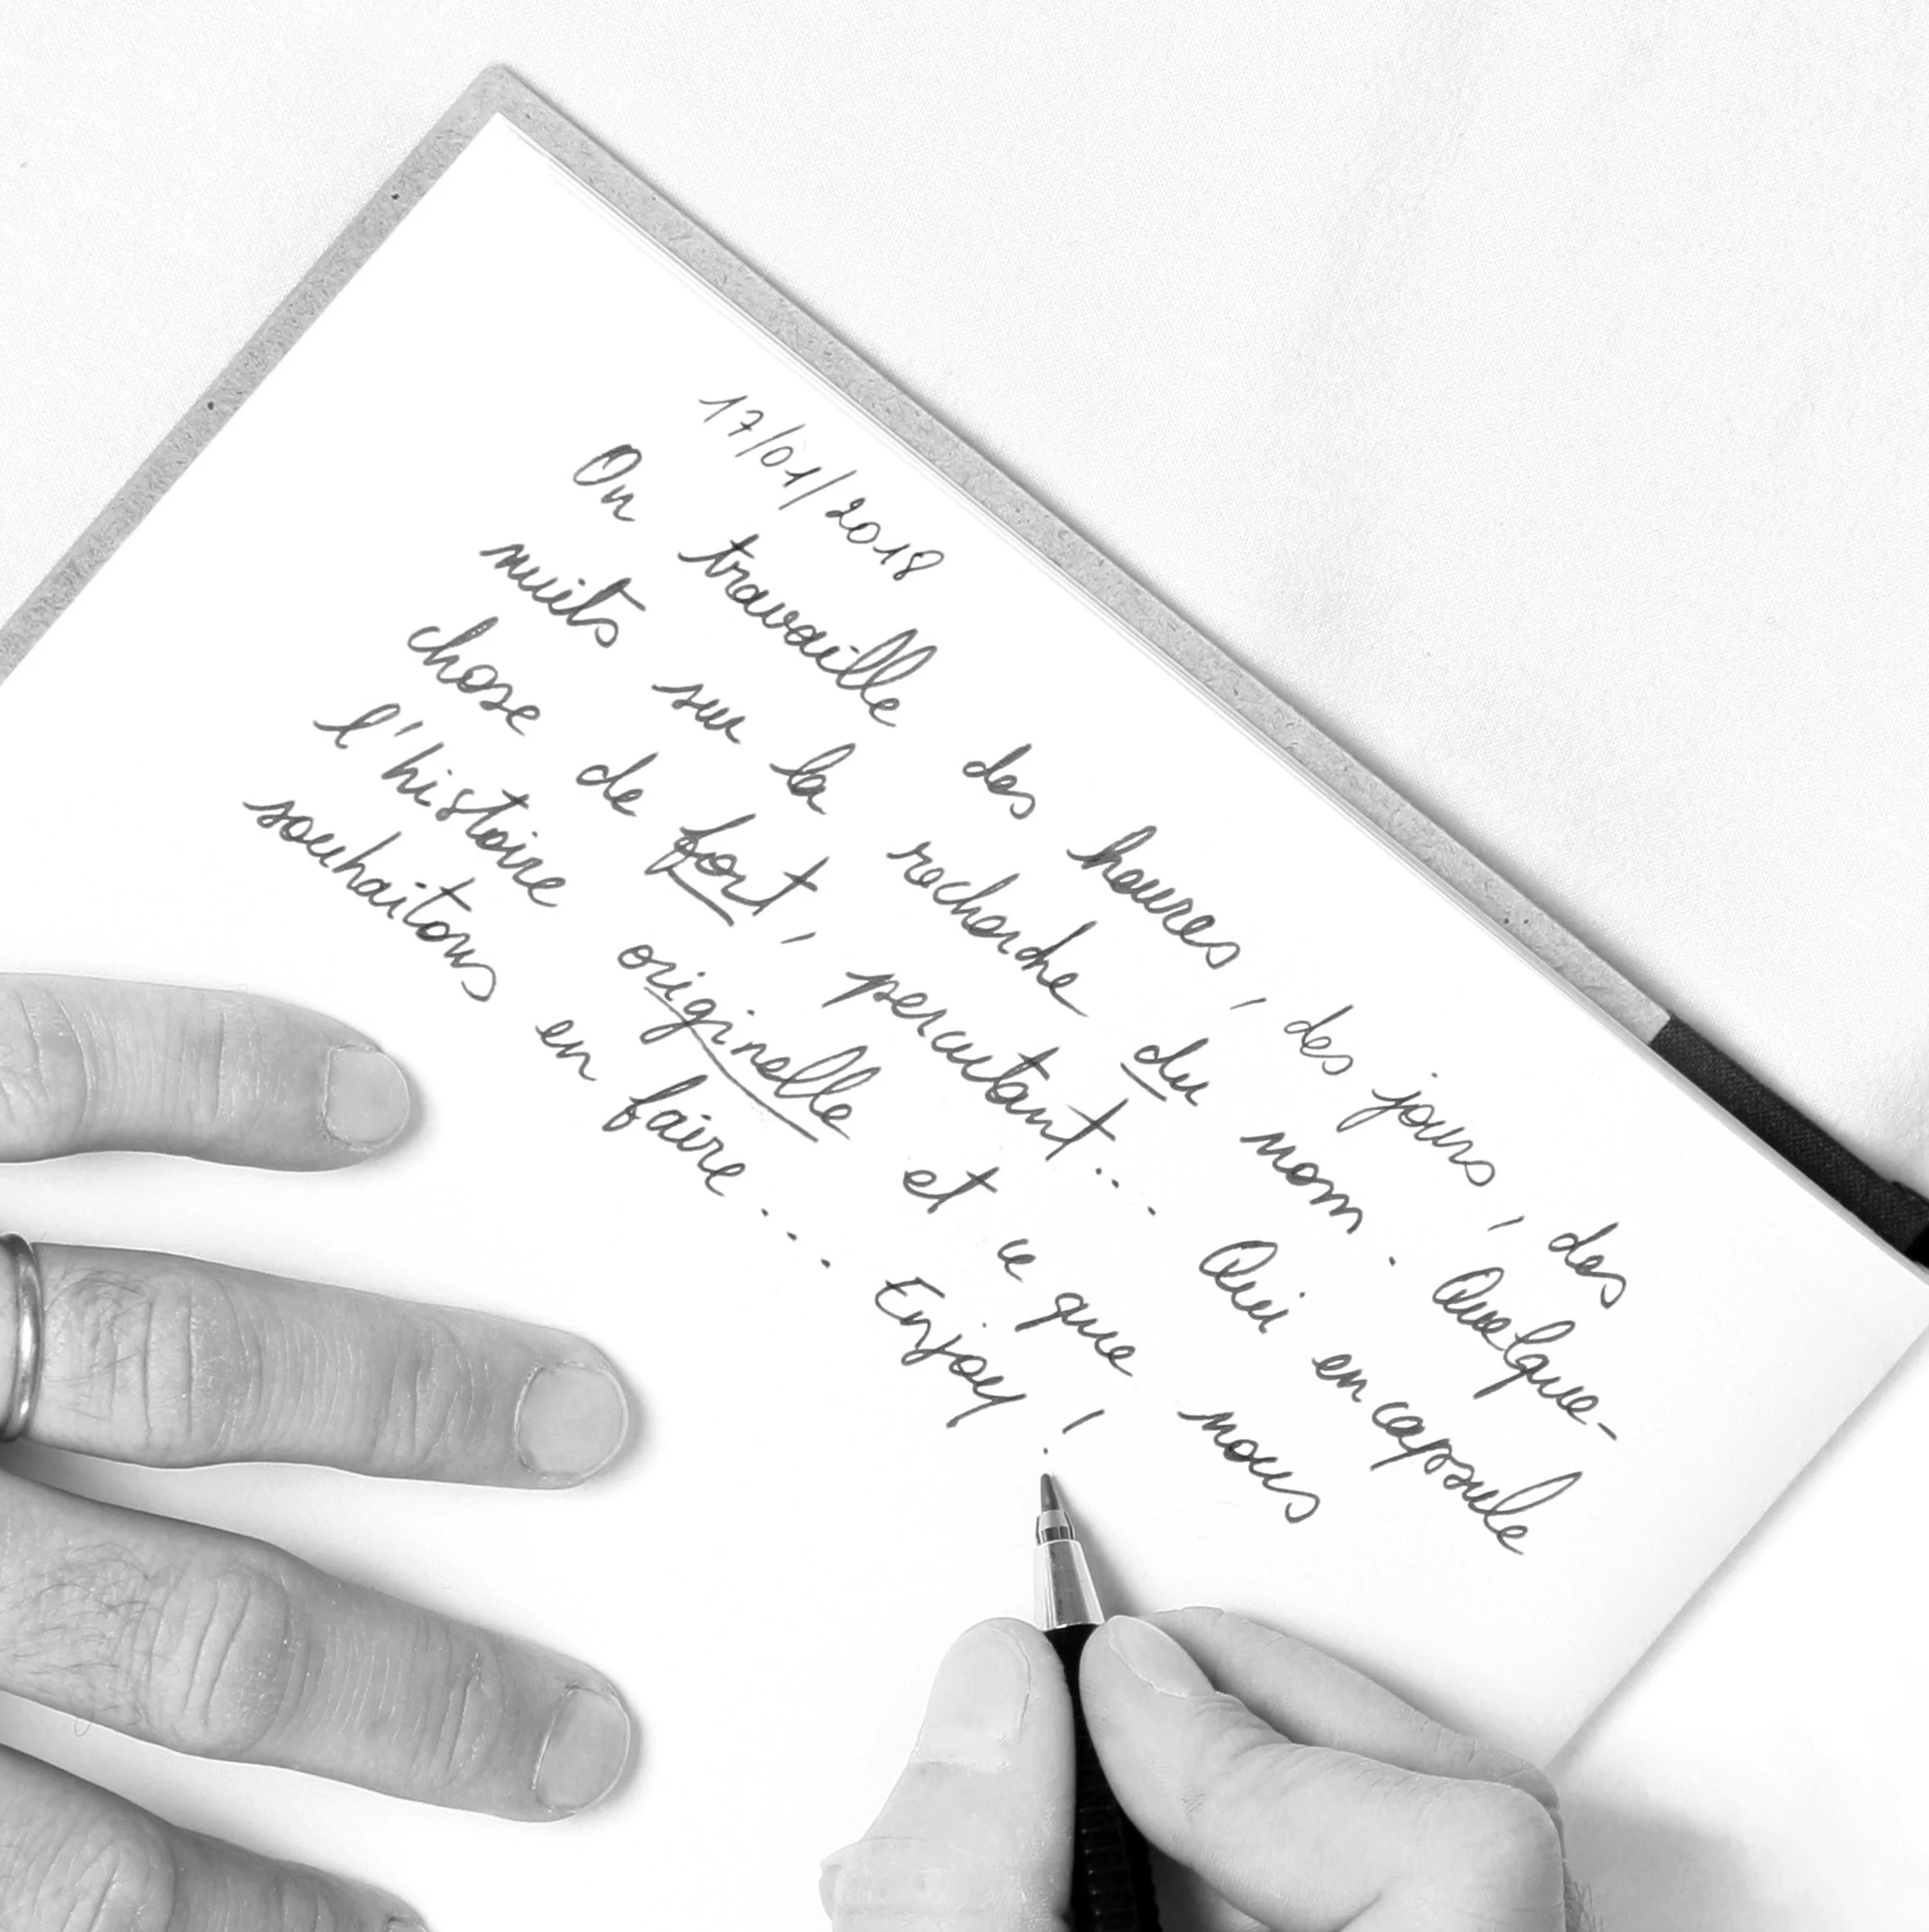 17/01/2018
On travaille des heures, des jours, des
nuits sur la recherche du nom. Quelque-
chose de fort, percutant... Qui encapsule
l'histoire originelle et ce que nous
souhaitons en faire... Enjoy !